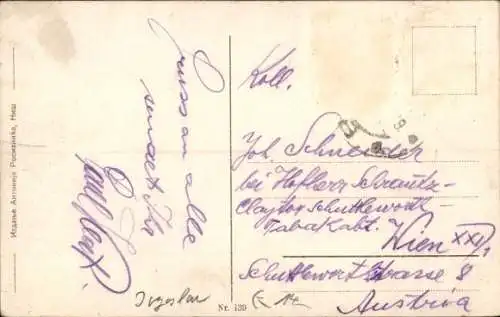 Издање Антонија Росманића, Ниш
Gruss an alle
sendet Ihr
Koll.
Joh. Schneider
bei Hofherr Schrantz-
Clayton Schuttleworth
Tabakabt.
Wien XXI/1
Schuttleworthstrasse 8
Austria
Jugoslav
Nr. 139